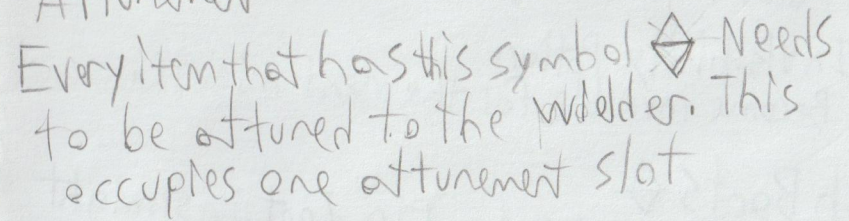 Attunement
Every item that has this symbol Needs
to be attuned to the wielder. This
occupies one attunement slot